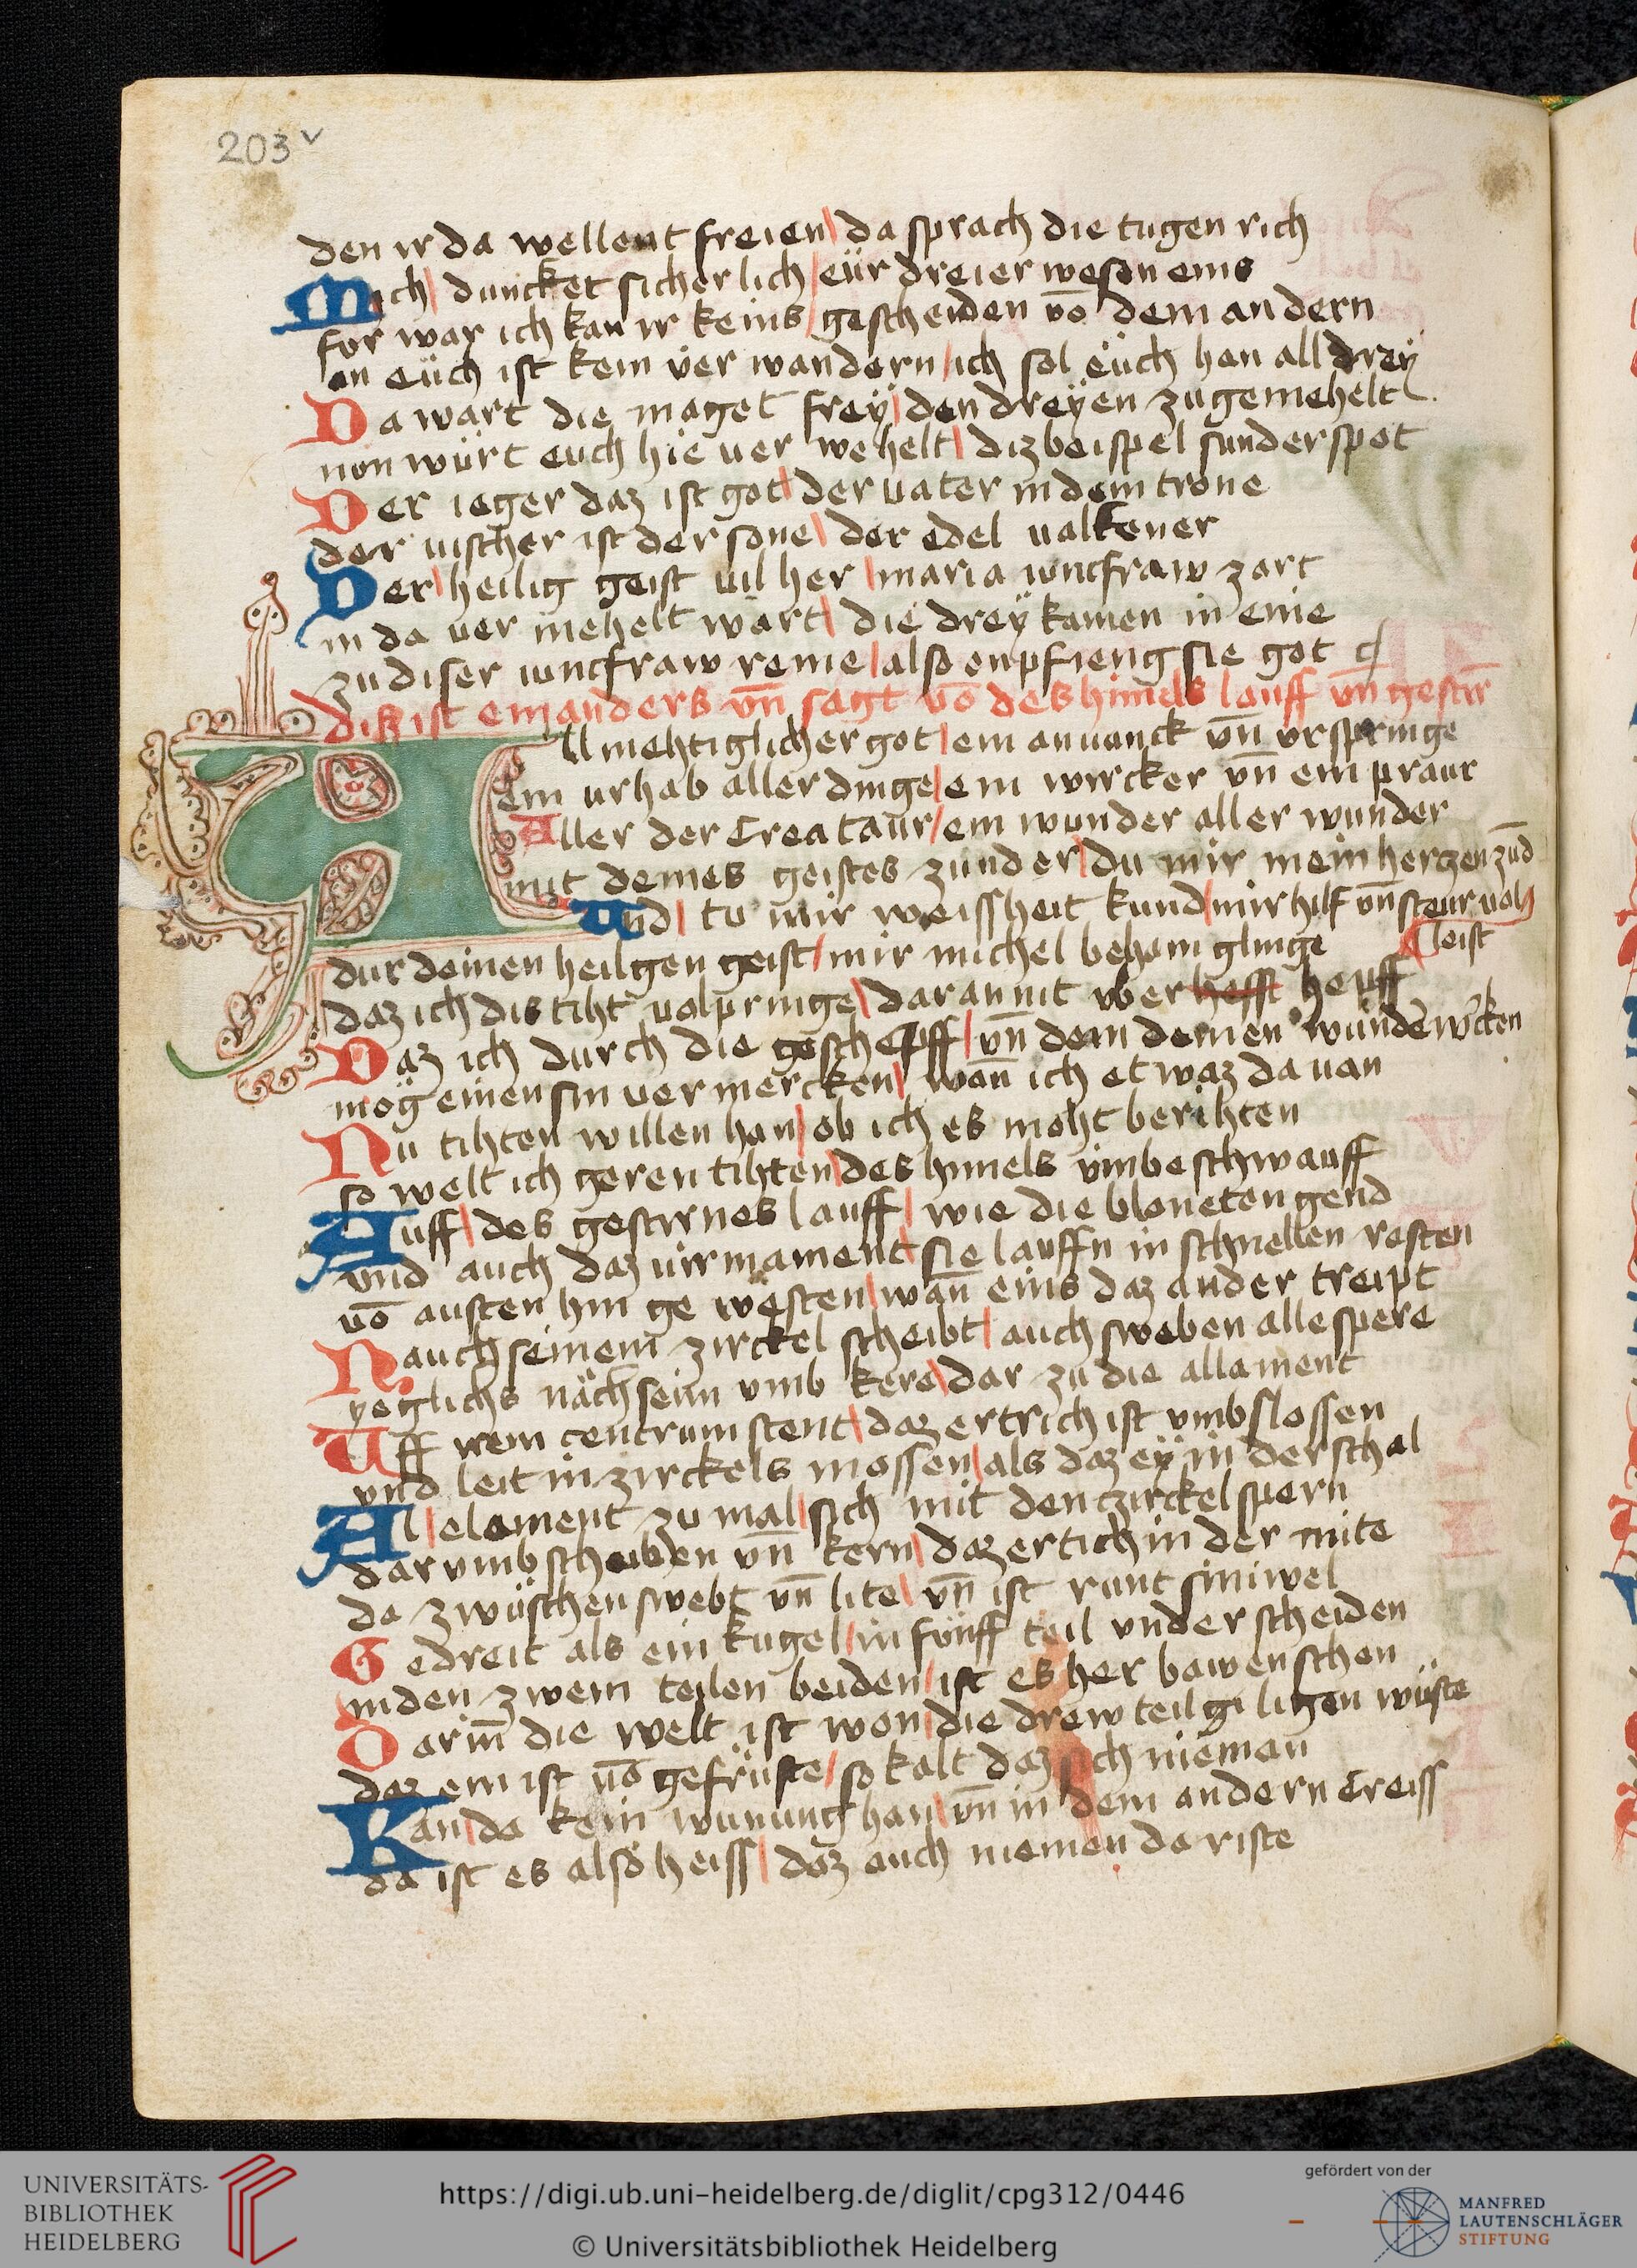 203v
den ir da wellent freien / da sprach die tugen rich
Mich / duncket sicherlich / eür dreier wesen eins
for war ich kan ir keins / gescheiden vō dem andern
an eüch ist kein ver wandern / ich sol eüch han all dreÿ
Da wart die maget freÿ / den dreÿen zu gemehelt
non würt euch hie ver wehelt / diz beispel sunder spot
Der ieger daz ist got / der uater in dem trone
der uischer ist der sone / der edel ualkener
Der / heilig geist uil her / maria iuncfraw zart
in da uer mehelt wart / die dreÿ kamen in eine
zu diser iuncfraw reine / also enpfieng sie got
diß ist ein anders vn̄ sagt vō des himels lauff vn̄ gestir
All mehtiglicher got / ein anuanck vn̄ vrspringe
ein urhab aller dinge / ein wircker vn̄ ein praur
Aller der Creataur / ein wunder aller wunder
mit deines geistes zunder / du mir mein herczen zūd
und / tu mir weissheit kund / mir hilf vn̄ steur uol
leist
dur deinen heilgen geist / mir michel beham glinge
daz ich dis tiht uolpringe / daran nit vber hefft heuff
Daz ich durch die geschepff / vn̄ dem deinen wunder wrcken
mög einen sin uermercken / wan̄ ich etwaz da uan
Nu tihten willen han / ob ich es moht berihten
so welt ich geren tihten / des himels vmbeschwauff
Auff / des gestirnes lauff / wie die bloneten gend
vnd auch daz uirmament / sie lauffn in schnellen resten
vō austen hin ge westen / wan̄ eins daz ander treipt
Nauch seinem zirckel scheibt / auch sweben alle spere
yeglichs näch seim vmb kere / dar zu die allament
Uff irem centrum stent / daz ertrich ist vmbslossen
vnd leit in zirckels mossen / als daz eÿ in der schal
Al / element zu mal / sich mit den zirckel spern
dar vmb scheiben vn̄ kern / daz ertich in der mite
da zwüschen swebt vn̄ lite / vn̄ ist runt siniwel
Gedreit als ein kugel / in fünff teil vnderscheiden
in den zwein teilen beiden / ist es her bawen schon
Darin̄ die welt ist won / die drew teil gi ligen wüste
daz ein ist vō gefrüste / so kalt daz sich nieman
Kan / da kein wunung han / vn̄ in dem andern Creiss
da ist es also heiss / daz auch niemen da riste
UNIVERSITÄTS-
BIBLIOTHEK
HEIDELBERG
https://digi.ub.uni-heidelberg.de/diglit/cpg312/0446
© Universitätsbibliothek Heidelberg
gefördert von der
MANFRED
LAUTENSCHLÄGER
STIFTUNG